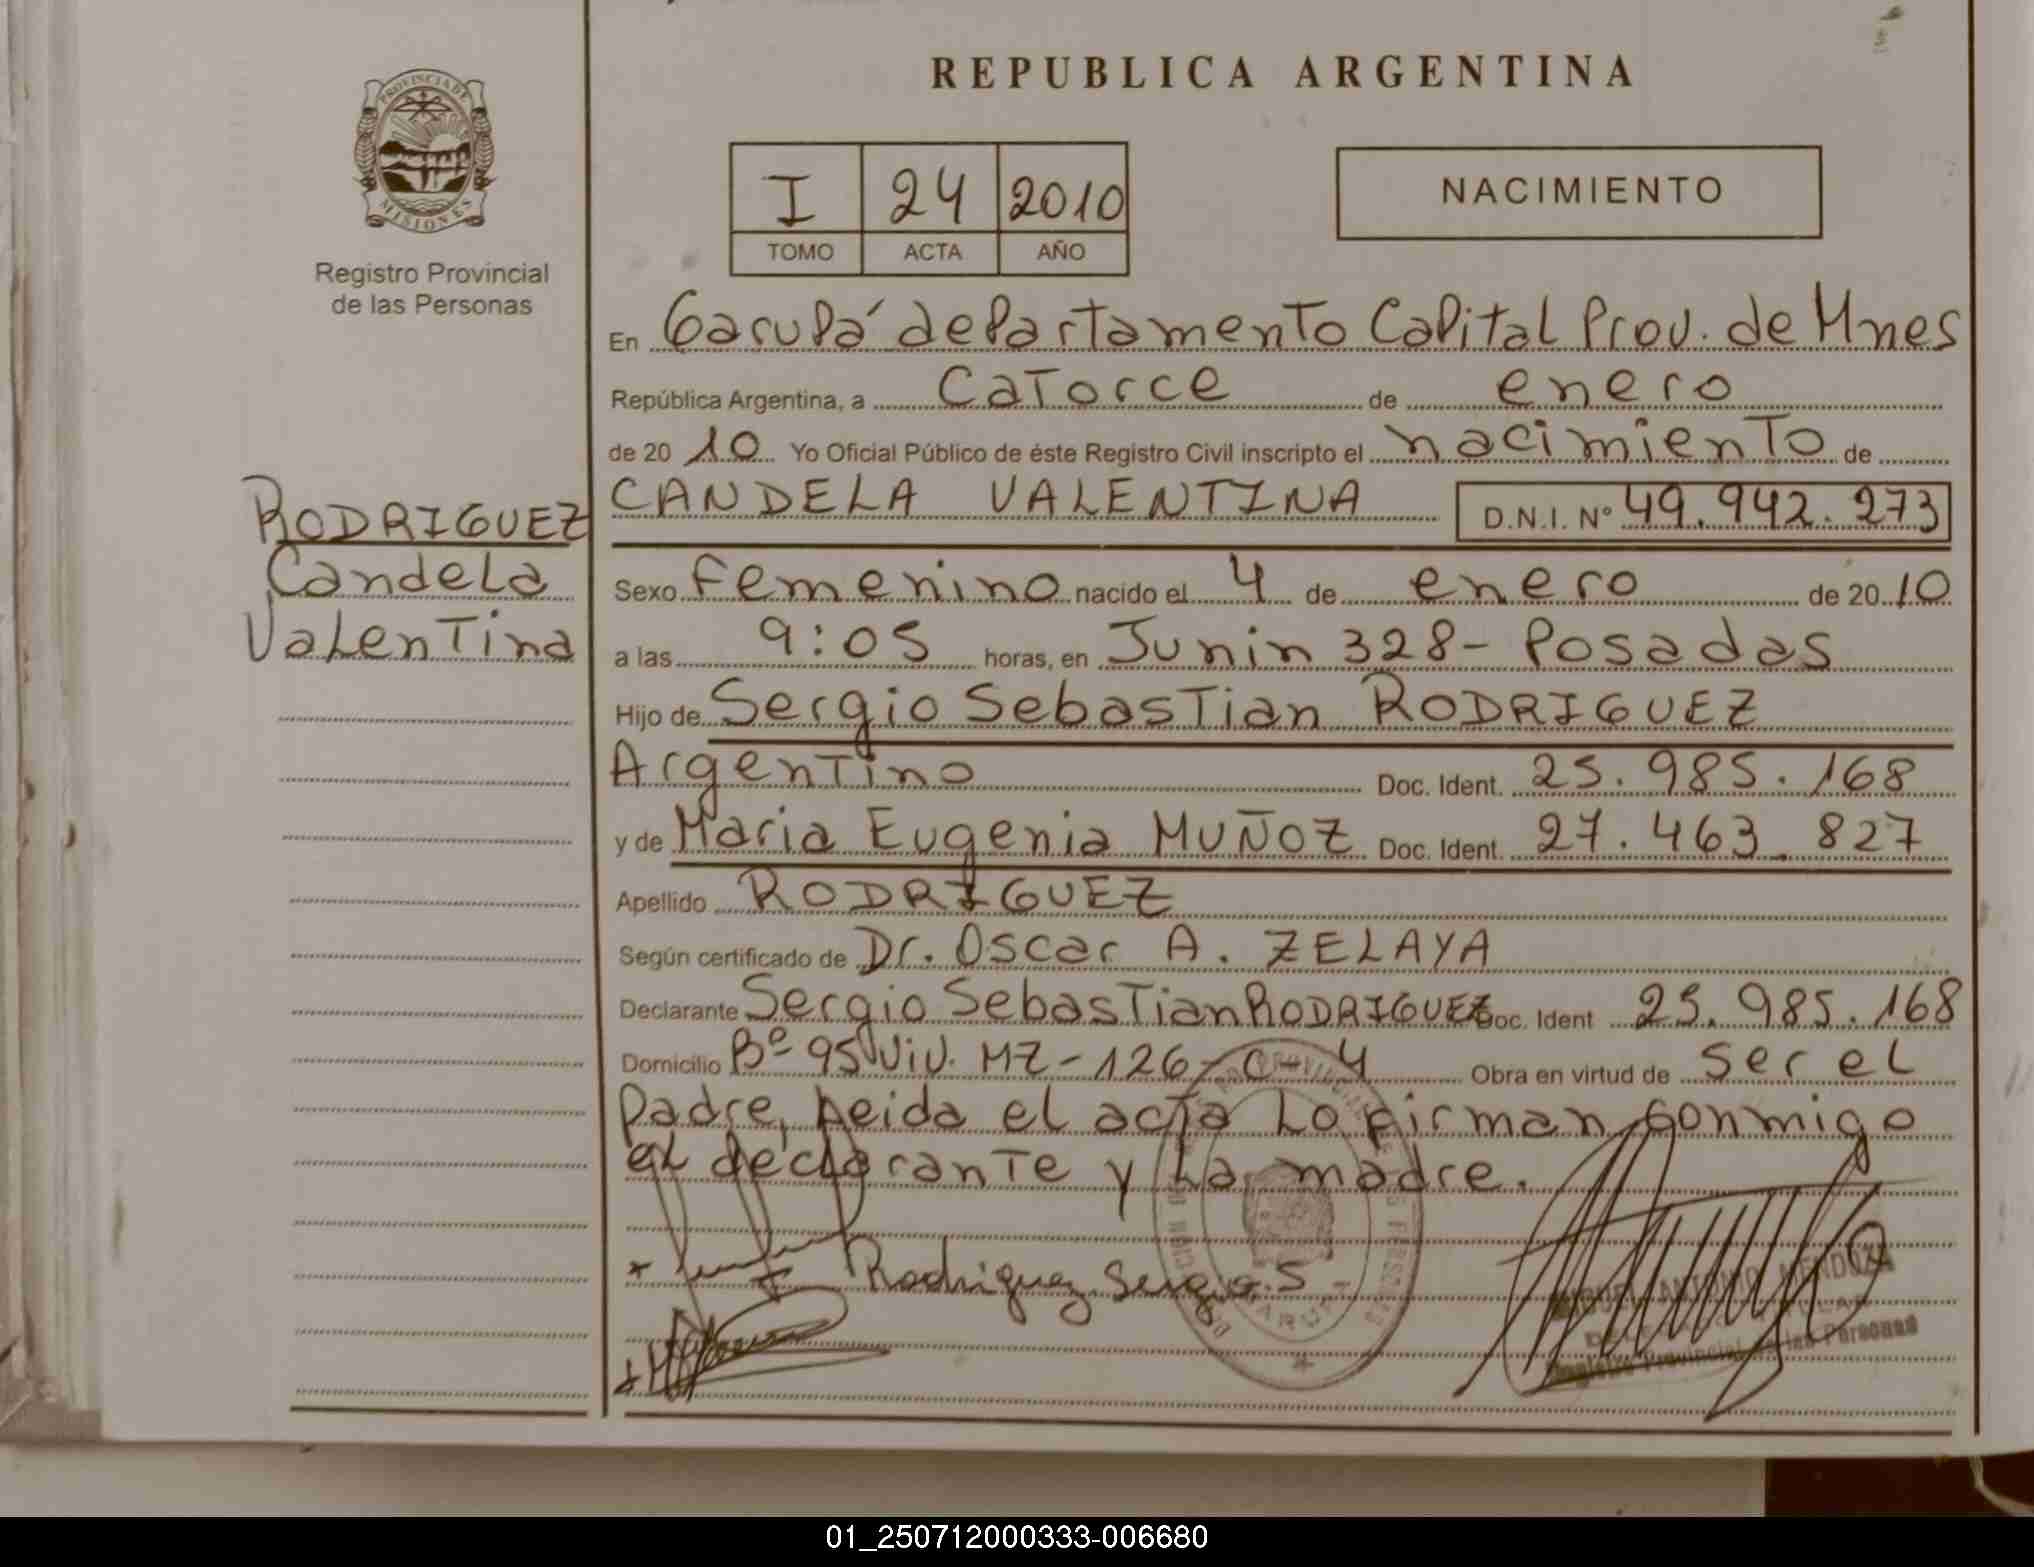 REPUBLICA ARGENTINA
PROVINCIA DE
MISIONES
Registro Provincial
de las Personas
I 24 2010
TOMO ACTA AÑO
NACIMIENTO
En Garupá departamento Capital Prov. de Mnes
República Argentina, a Catorce de enero
de 20 10 Yo Oficial Público de éste Registro Civil inscripto el nacimiento de
CANDELA VALENTINA D.N.I. Nº 49.942.273
RODRIGUEZ
Candela
Valentina
Sexo Femenino nacido el 4 de enero de 20 10
a las 9:05 horas, en Junin 328 - Posadas
Hijo de Sergio Sebastian RODRIGUEZ
Argentino Doc. Ident. 25.985.168
y de Maria Eugenia MUÑOZ Doc. Ident. 27.463.827
Apellido RODRIGUEZ
Según certificado de Dr. Oscar A. ZELAYA
Declarante Sergio Sebastian RODRIGUEZ Doc. Ident 25.985.168
Domicilio Bº 95 Viv. MZ-126-C-4 Obra en virtud de ser el
Padre, Leida el acta Lo firman conmigo
el declarante y La madre.
Rodriguez Sergio. S
MIGUEL ANTONIO MENDOZA
Registro Provincial de las Personas
01_250712000333-006680